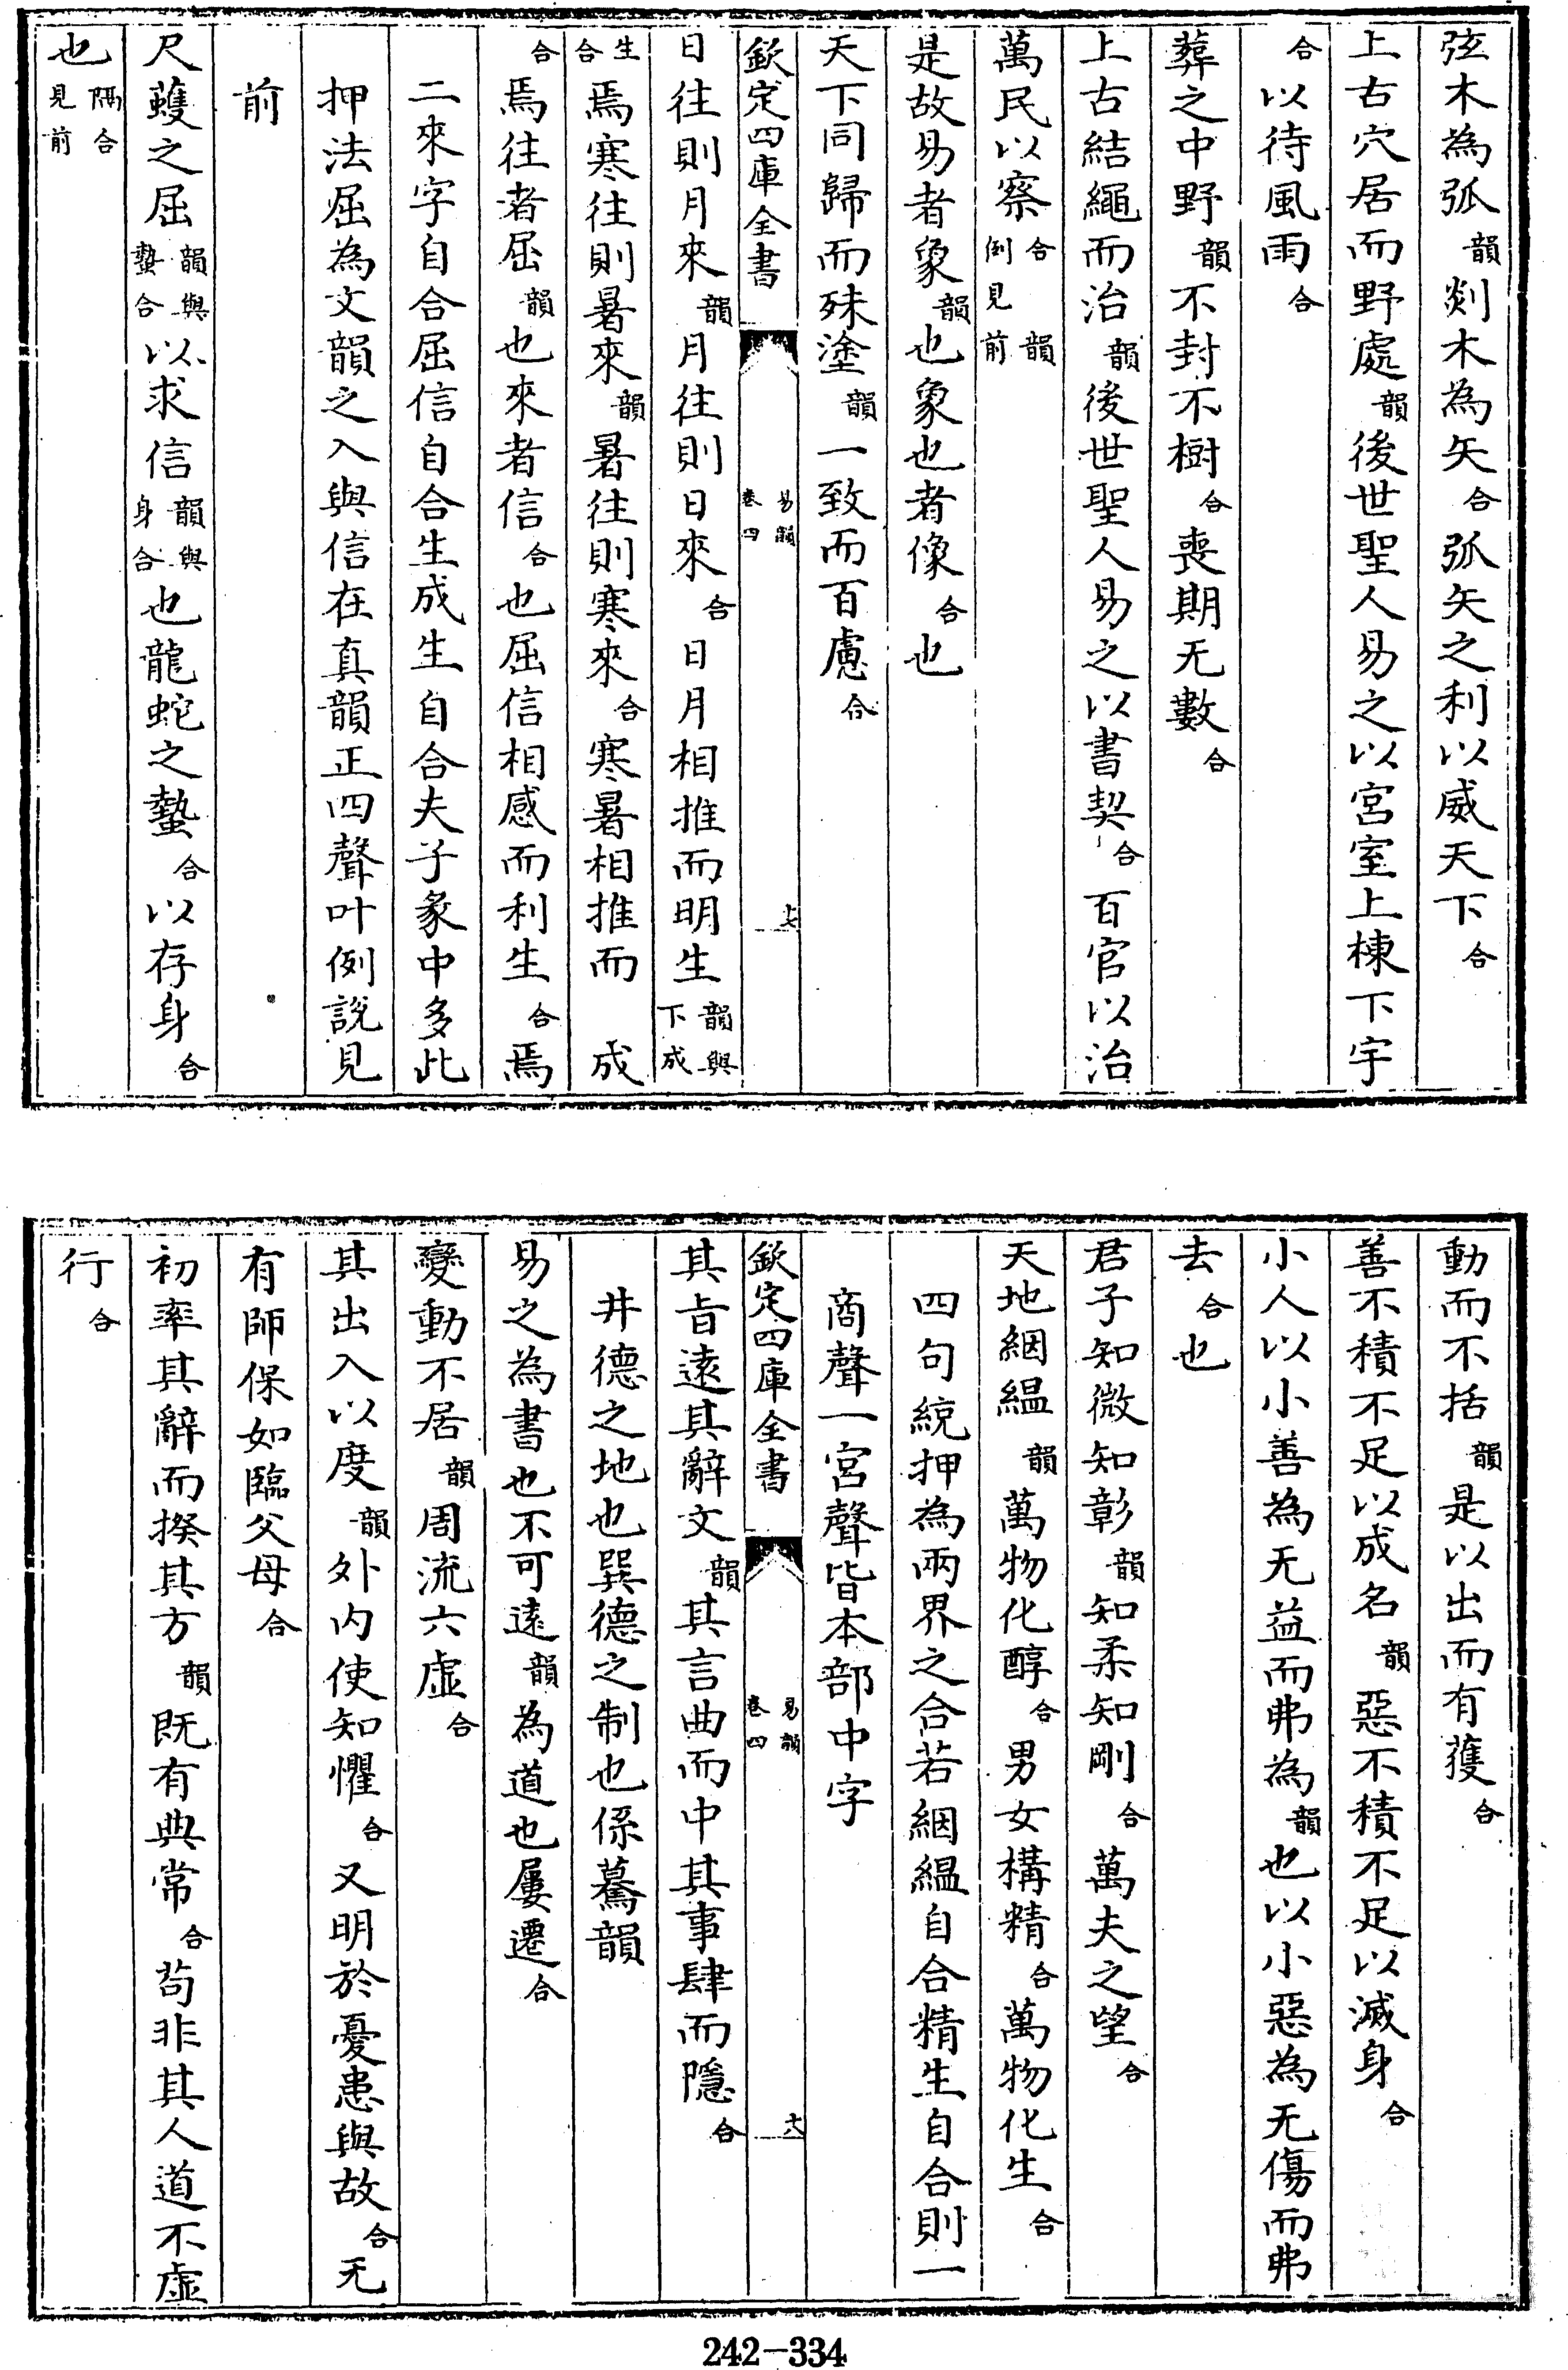 弦木為弧韻剡木為矢合弧矢之利以威天下合
上古穴居而野處韻後世聖人易之以宮室上棟下宇
合以待風雨合
葬之中野韻不封不樹合喪期无數合
上古結繩而治韻後世聖人易之以書契合百官以治
萬民以察合韻例見前
是故易者象韻也象也者像合也
天下同歸而殊塗韻一致而百慮合
欽定四庫全書 易韻卷四 十七
日往則月來韻月往則日來合日月相推而明生韻與下成
生合焉寒往則暑來韻暑往則寒來合寒暑相推而 成
合焉往者屈韻也來者信合也屈信相感而利生合焉
二來字自合屈信自合生成生自合夫子彖中多此
押法屈為文韻之入與信在真韻正四聲叶例說見
前
尺蠖之屈韻與蟄合以求信韻與身合也龍蛇之蟄合以存身合
也隔合見前
動而不括韻是以出而有獲合
善不積不足以成名韻惡不積不足以滅身合
小人以小善為无益而弗為韻也以小惡為无傷而弗
去合也
君子知微知彰韻知柔知剛合萬夫之望合
天地絪緼韻萬物化醇合男女構精合萬物化生合
四句統押為兩界之合若絪緼自合精生自合則一
商聲一宮聲皆本部中字
欽定四庫全書 易韻卷四 十八
其旨遠其辭文韻其言曲而中其事肆而隱合
井德之地也巽德之制也係驀韻
易之為書也不可遠韻為道也屢遷合
變動不居韻周流六虛合
其出入以度韻外内使知懼合又明於憂患與故合无
有師保如臨父母合
初率其辭而揆其方韻既有典常合苟非其人道不虛
行合
242-334